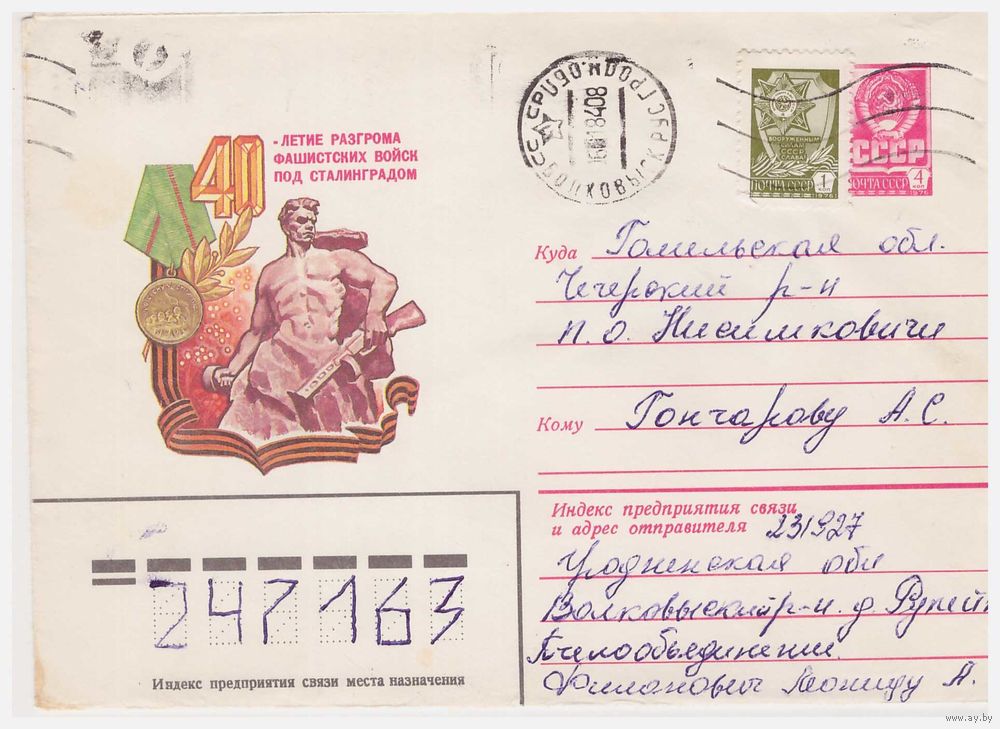 40
-ЛЕТИЕ РАЗГРОМА
ФАШИСТСКИХ ВОЙСК
ПОД СТАЛИНГРАДОМ
ВООРУЖЕННЫМ
СИЛАМ
СССР
СЛАВА!
ПОЧТА СССР 1 КОП
1976
СССР
ПОЧТА СССР 4 КОП
1976
СССР ВОЛКОВЫСК ГРОДН.ОБ
8408
Куда Гомельская обл.
Чечерский р-н
п.о. Нисимковичи
Кому Гончарову А.С.
Индекс предприятия связи
и адрес отправителя 231927
Гродненская обл
Волковыский р-н. д.
Пчелообъединение
Филанович Леониду А.
247163
Индекс предприятия связи места назначения
www.ay.by